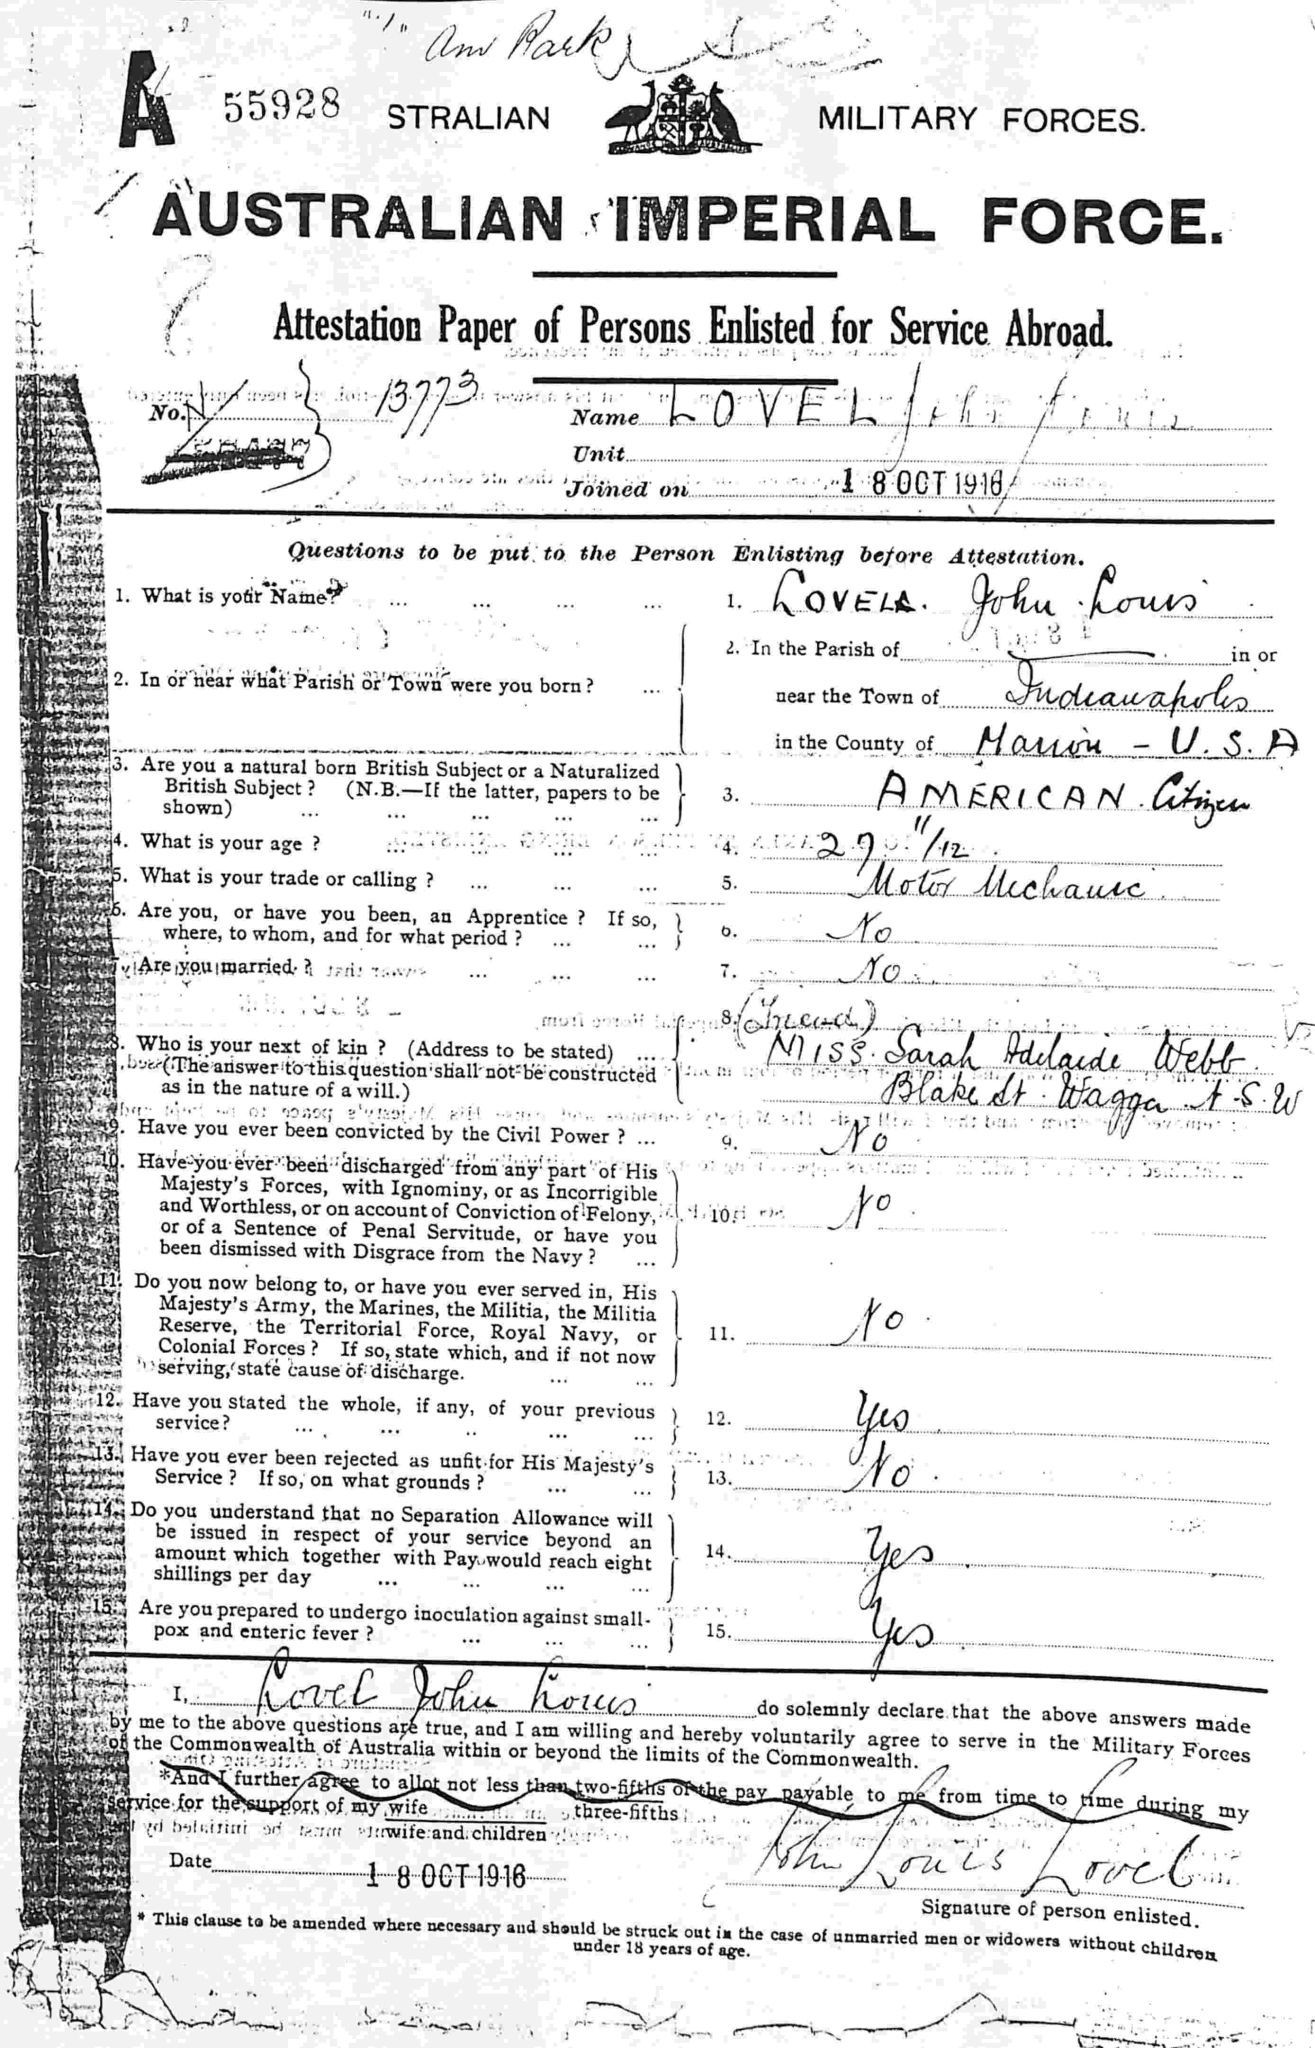 Am Park
A 55928 STRALIAN MILITARY FORCES.
AUSTRALIAN IMPERIAL FORCE.
Attestation Paper of Persons Enlisted for Service Abroad.
No. 13773
Name LOVEL John Louis
Unit
Joined on 18 OCT 1916
Questions to be put to the Person Enlisting before Attestation.
1. What is your Name? ... ... ... ... 1. LOVEL. John Louis
2. In or near what Parish or Town were you born? ... 2. In the Parish of in or
near the Town of Indianapolis
in the County of Marion - U.S.A
3. Are you a natural born British Subject or a Naturalized
British Subject? (N.B.—If the latter, papers to be
shown) ... ... ... ... ... 3. AMERICAN Citizen
4. What is your age? ... ... ... ... 4. 27 11/12
5. What is your trade or calling? ... ... ... 5. Motor Mechanic
6. Are you, or have you been, an Apprentice? If so,
where, to whom, and for what period? ... ... 6. No
7. Are you married? ... ... ... 7. No
8. (Friend)
8. Who is your next of kin? (Address to be stated) ... Miss Sarah Adelaide Webb
(The answer to this question shall not be constructed
as in the nature of a will.) Blake St. Wagga N.S.W
9. Have you ever been convicted by the Civil Power? ... 9. No
10. Have you ever been discharged from any part of His
Majesty's Forces, with Ignominy, or as Incorrigible
and Worthless, or on account of Conviction of Felony,
or of a Sentence of Penal Servitude, or have you
been dismissed with Disgrace from the Navy? ... 10. No
11. Do you now belong to, or have you ever served in, His
Majesty's Army, the Marines, the Militia, the Militia
Reserve, the Territorial Force, Royal Navy, or
Colonial Forces? If so, state which, and if not now
serving, state cause of discharge. ... ... 11. No
12. Have you stated the whole, if any, of your previous
service? ... ... ... ... ... 12. Yes
13. Have you ever been rejected as unfit for His Majesty's
Service? If so, on what grounds? ... ... 13. No
14. Do you understand that no Separation Allowance will
be issued in respect of your service beyond an
amount which together with Pay would reach eight
shillings per day ... ... ... ... 14. Yes
15. Are you prepared to undergo inoculation against small-
pox and enteric fever? ... ... ... 15. Yes
I, Lovel John Louis do solemnly declare that the above answers made
by me to the above questions are true, and I am willing and hereby voluntarily agree to serve in the Military Forces
of the Commonwealth of Australia within or beyond the limits of the Commonwealth.
*And I further agree to allot not less than two-fifths of the pay payable to me from time to time during my
service for the support of my wife three-fifths
wife and children
John Louis Lovel
Date 18 OCT 1916
Signature of person enlisted.
* This clause to be amended where necessary and should be struck out in the case of unmarried men or widowers without children
under 18 years of age.